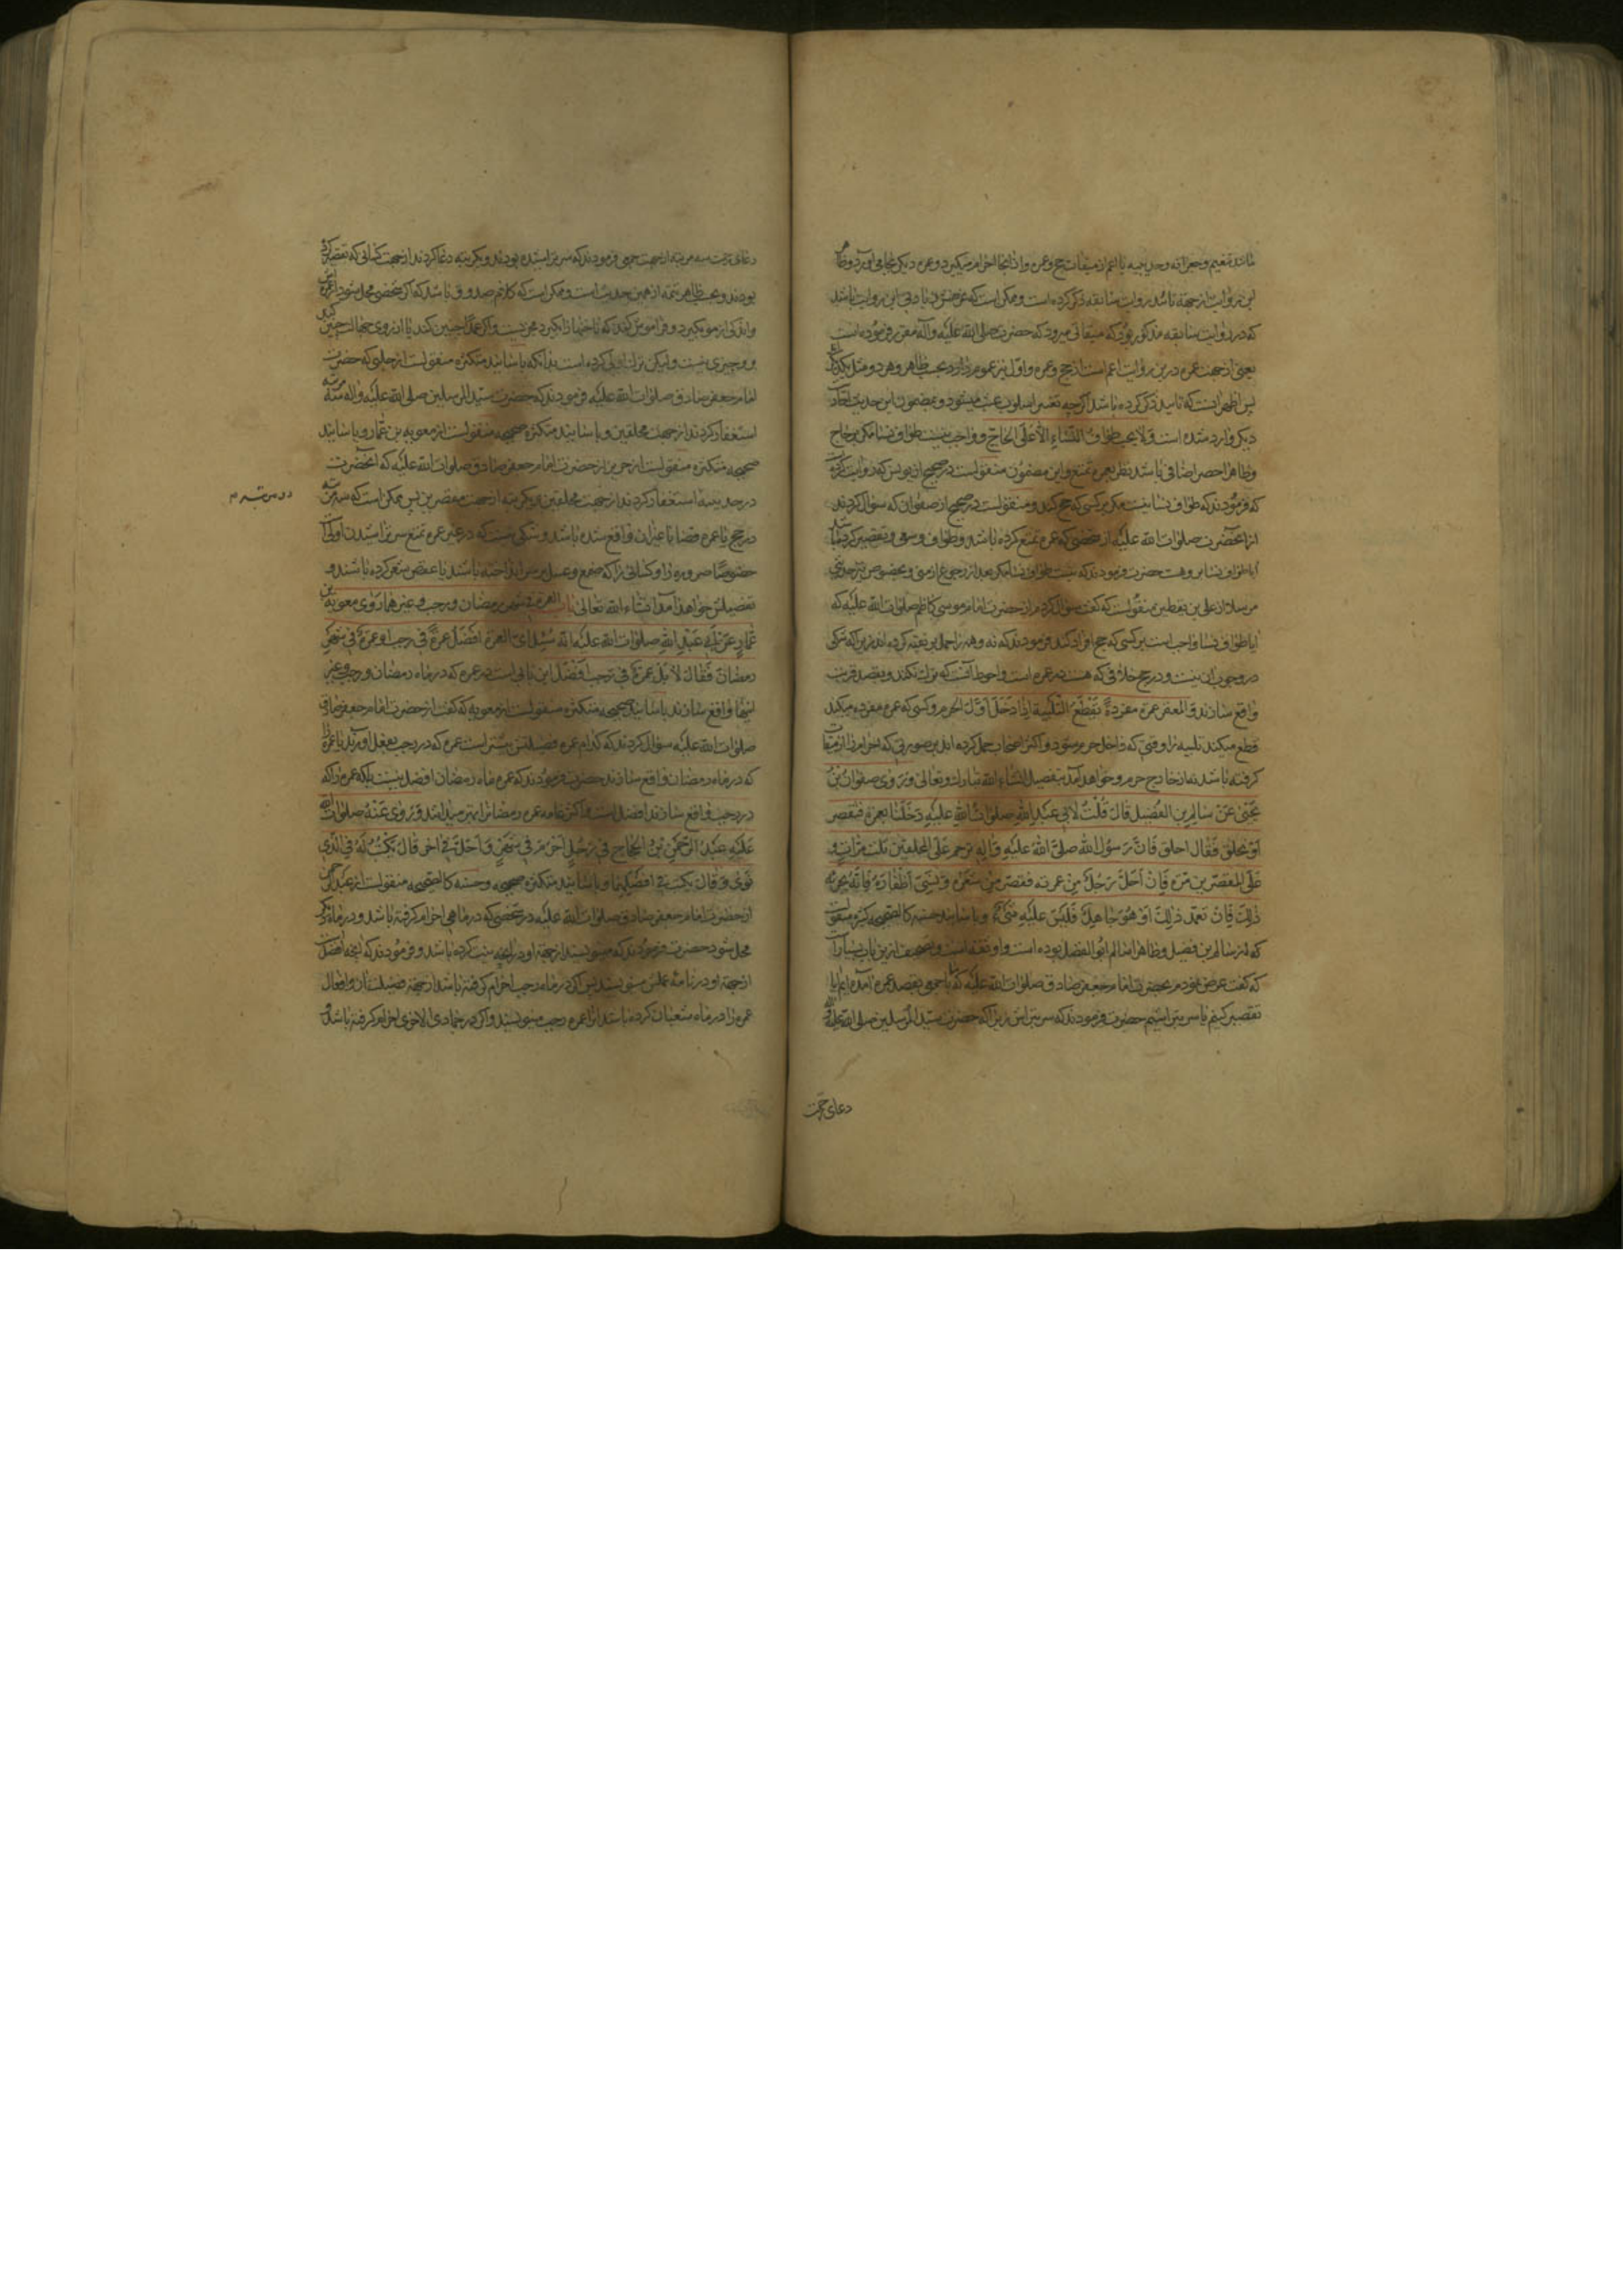 مانند تنعیم و جعرانه و حدیبیه یا اعم از میقات حج و عمره و از انجا احرام میگیرد و عمره دیگر بجا می آورد و
این روایت از جهة تأیید روایت سابقه ذکر کرده است و ممکن است که غرض باشد
که در روایت سابقه مذکور بود که میقاتی میرود که حضرت صلی الله علیه و آله مقرر فرموده است
یعنی از جهت عمره درین روایت اعم است از حج و عمره و اول نیز عموم دارد بحسب ظاهر و هر دو مثل یکدیگر
پس اظهر انست که تایید ذکر کرده باشد اگر چه تغییر اسلوب عبث میشود و بمضمون این حدیث
دیگر وارد شده است ولا یجب طواف النساء الا علی الحاج و واجب نیست طواف نسا مکر بر حاج
و ظاهرا حصر اضافی باشد نظر بعمره تمتع و این مضمون منقولست در صحیح از یونس که روایت کرده
که فرمودند که طواف نسا نیست مکر بر کسی که حج کند و منقولست در صحیح از صفوان که سؤال کردند
از انحضرت صلوات الله علیه از شخصی که عمره تمتع کرده باشد و طواف و سعی و تقصیر کرده باشد
ایا طواف نسا بر و هست حضرت فرمودند که نیست طواف نسا مکر بعد از رجوع از منی و بخصوص نیز چون
مرسلا از علی بن یقطین منقولست که گفت سؤال کردم از حضرت امام موسی کاظم صلوات الله علیه که
ایا طواف نسا واجب است بر کسی که حج افراد کند فرمودند که نه و همه را حمل بر تقیه کرده اند زیرا که شکی
در وجوب ان نیست و در حج خلافی که هست در عمره است و احوط آنست که ترک نکند و بقصد قربت
واقع سازند و المعتمر عمرة مفردة یقطع التلبیة اذا دخل اول الحرم و کسی که عمره مفرده میکند
قطع میکند تلبیه را وقتی که داخل حرم میشود و اکثر اصحاب حمل کرده اند برین صورتی که احرام را از میقات
کرفته باشد نه از خارج حرم و خواهد آمد بتفصیل انشاء الله تبارک و تعالی و روی صفوان بن
یحیی عن سالم بن الفضیل قال قلت لابی عبد الله صلوات الله علیه دخلنا بعمرة فنقصر
او نحلق فقال احلق فان رسول الله صلی الله علیه و آله ترحم علی المحلقین ثلث مرات و
علی المقصرین مرة فان احل رجل من عمرته فقصر من شعره و نسی اظفاره فانه یجزیه
ذلک فان تعمد ذلک او هو جاهل فلیس علیه شیء و باسانید حسنه کالصحیحه کثیره منقولست
که از سالم بن فضیل و ظاهرا سالم ابو الفضل بوده است و او ثقه است و تصحیف ازین باب بسیار
که گفت عرض نمودم بحضرت امام جعفر صادق صلوات الله علیه که با جمعی بقصد عمره آمده ایم ایا
تقصیر کنیم یا سر بتراشیم حضرت فرمودند که سر بتراش زیرا که حضرت سید المرسلین صلی الله علیه
دعای رحمت
دعای رحمت سه مرتبه از جهت جمعی فرمودند که سر تراشیده بودند و یکمرتبه دعا کردند از جهت کسانی که تقصیر کرده
بودند و بحسب ظاهر تتمه از همین حدیث است و ممکن است که کلام صدوق باشد که اکر شخصی محل شود از عمره اش
و اندکی از مو بگیرد و فراموش کند که ناخنها را بگیرد مجزیست و اکر عمدا چنین کند یا از روی جهالت چنین کند
برو چیزی نیست و لیکن ترک اولی کرده است بدانکه باسانید متکثره منقولست از حلبی که حضرت
امام جعفر صادق صلوات الله علیه فرمودند که حضرت سید المرسلین صلی الله علیه و آله سه مرتبه
استغفار کردند از جهت محلقین و باسانید متکثره صحیحه منقولست از معویه بن عمار و باسانید
صحیحه متکثره منقولست از حریز از حضرت امام جعفر صادق صلوات الله علیه که انحضرت
در حدیبیه استغفار کردند از جهت محلقین و یکمرتبه از جهت مقصرین پس ممکن است که سه مرتبه
دو مرتبه م
در حج یا عمره قضا یا غیر ان واقع شده باشد و شکی نیست که در غیر عمره تمتع سر تراشیدن اولی است
خصوصا صروره را و کسانی را که صمغ و عسل بر سر انداخته باشند یا عقص شعر کرده باشند و
تفصیلش خواهد آمد انشاء الله تعالی باب العمرة فی شهر رمضان و رجب و غیرهما روی معویة بن
عمار عن ابی عبد الله صلوات الله علیه انه سئل ای العمرة افضل عمرة فی رجب او عمرة فی شهر
رمضان فقال لا بل عمرة فی رجب افضل این بابی است در عمره که در ماه رمضان و رجب و غیر
اینها واقع سازند باسانید صحیحه متکثره منقولست از معویه که گفت از حضرت امام جعفر صادق
صلوات الله علیه سؤال کردند که کدام عمره فضیلتش بیشتر است عمره که در رجب بفعل اورند یا عمرهٔ
که در ماه رمضان واقع سازند حضرت فرمودند که عمره ماه رمضان افضل نیست بلکه عمره را که
در رجب واقع سازند افضل است و اکثر عامه عمره رمضان را بهتر میدانند و روی عنه صلوات الله
علیه عبد الرحمن بن الحجاج فی رجل احرم فی شهر و احل فی اخر قال یکتب له فی الذی
نوی و قال یکتب فی افضلهما و باسانید متکثره صحیحه و حسنه کالصحیحه منقولست از عبد الرحمن
از حضرت امام جعفر صادق صلوات الله علیه در شخصی که در ماهی احرام کرفته باشد و در ماه دیگر
محل شود حضرت فرمودند که مینویسند از جهة او در انچه نیت کرده باشد و فرمودند که انچه افضل است
از جهة او در نامهٔ عملش مینویسند پس اکر در ماه رجب احرام کرفته باشد از جهة فضیلت ان و افعال
عمره را در ماه شعبان کرده باشد انرا عمره رجب مینویسند و اکر در جمادی الاخری احرام کرفته باشد